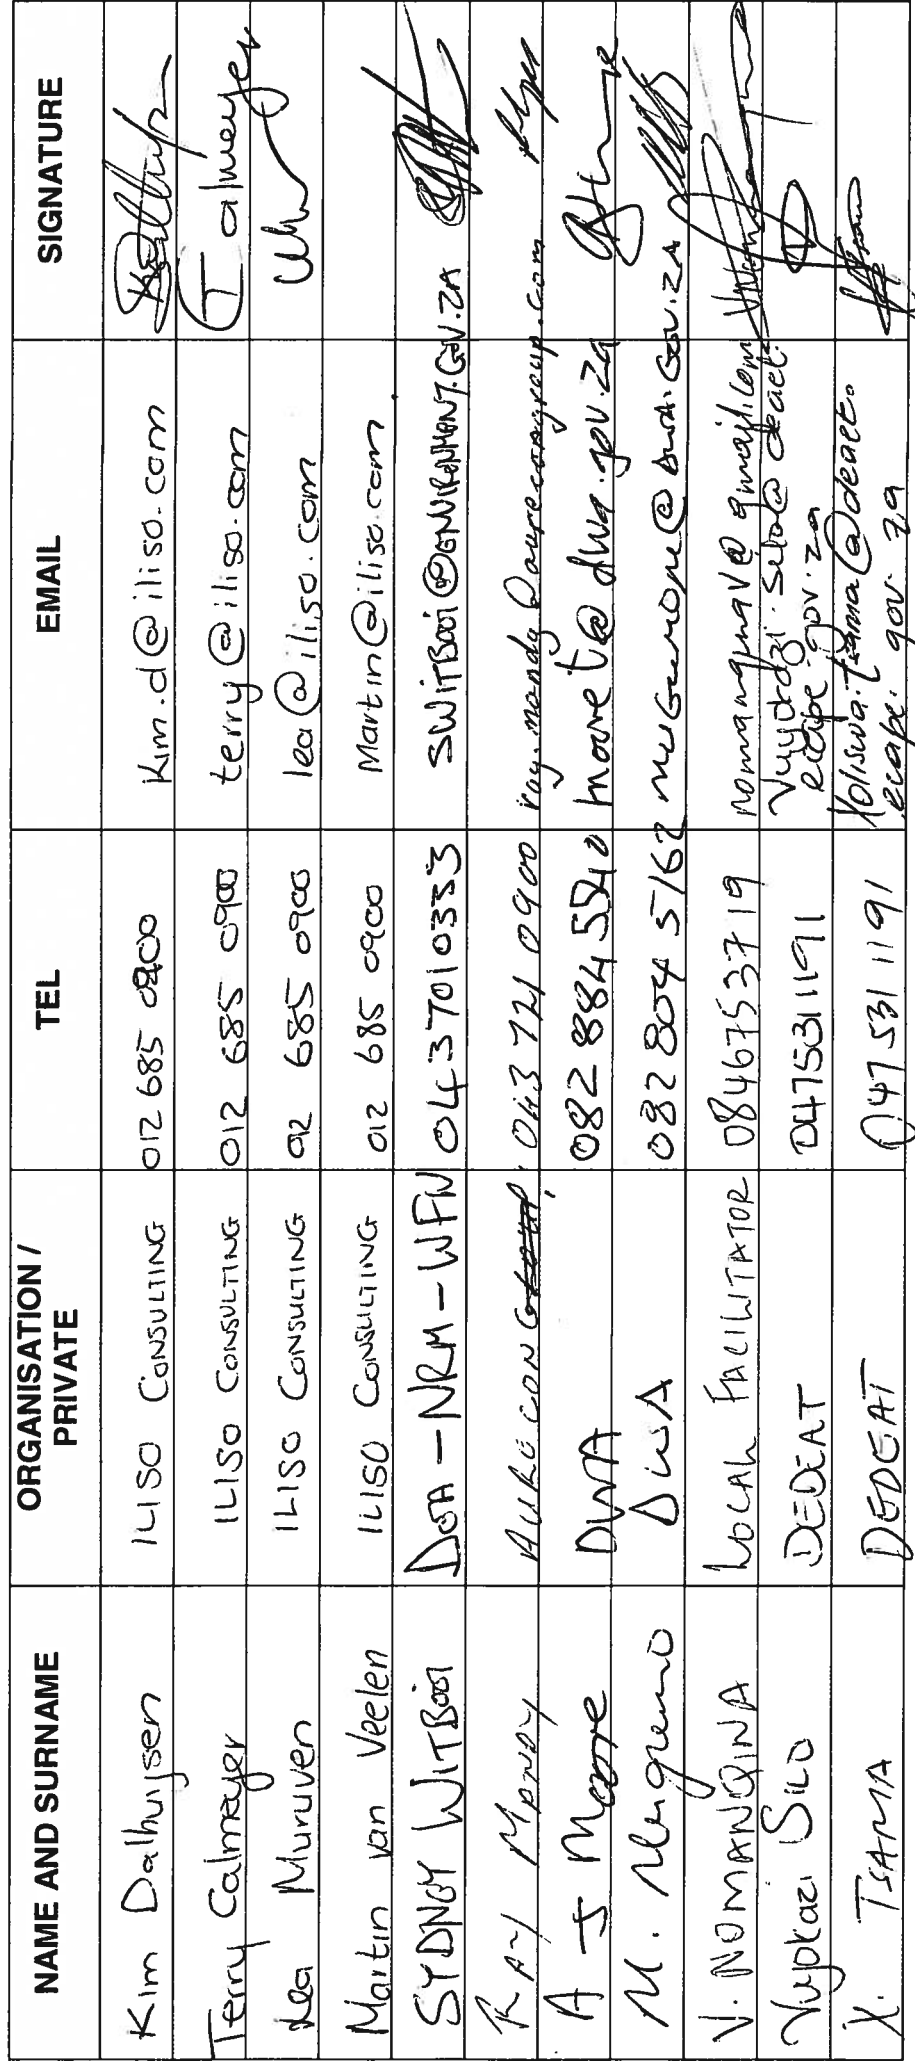 NAME AND SURNAME ORGANISATION / PRIVATE TEL EMAIL SIGNATURE
Kim Dalhuijsen ILISO CONSULTING 012 685 0900 kim.d@iliso.com
Terry Calmeyer ILISO CONSULTING 012 685 0900 terry@iliso.com Calmeyer
Lea Muruven ILISO CONSULTING 012 685 0900 lea@iliso.com
Martin van Veelen ILISO CONSULTING 012 685 0900 Martin@iliso.com
SYDNEY WITBOOI DOA-NRM-WFW 0437010333 SWITBOOI@ENVIRONMENT.GOV.ZA
RAY MANDY AURECON 043 721 0900 ray.mandy@aurecongroup.com
A J Moore DWA 082 884 5540 mooret@dwa.gov.za
M. DWA 082 804 5162 @DWA.GOV.ZA
V. NOMANQINA LOCAL FACILITATOR 0846753719 nomanqinav@gmail.com
Vuyokazi SILO DEDEAT 0475311191 Vuyokazi.silo@deaet.
ecape.gov.za
X. TSAMA DEDEAT 047 531 1191 Xoliswa.Tsama@deaet.
ecape.gov.za